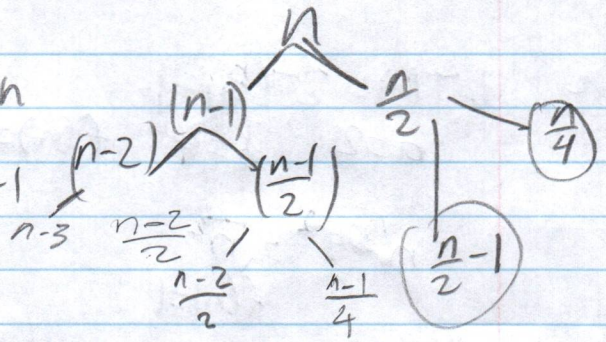 n
n (n-1) n/2 n/4
-1 (n-2) ((n-1)/2)
n-3 (n-2)/2 n/2 -1
(n-2)/2 (n-1)/4